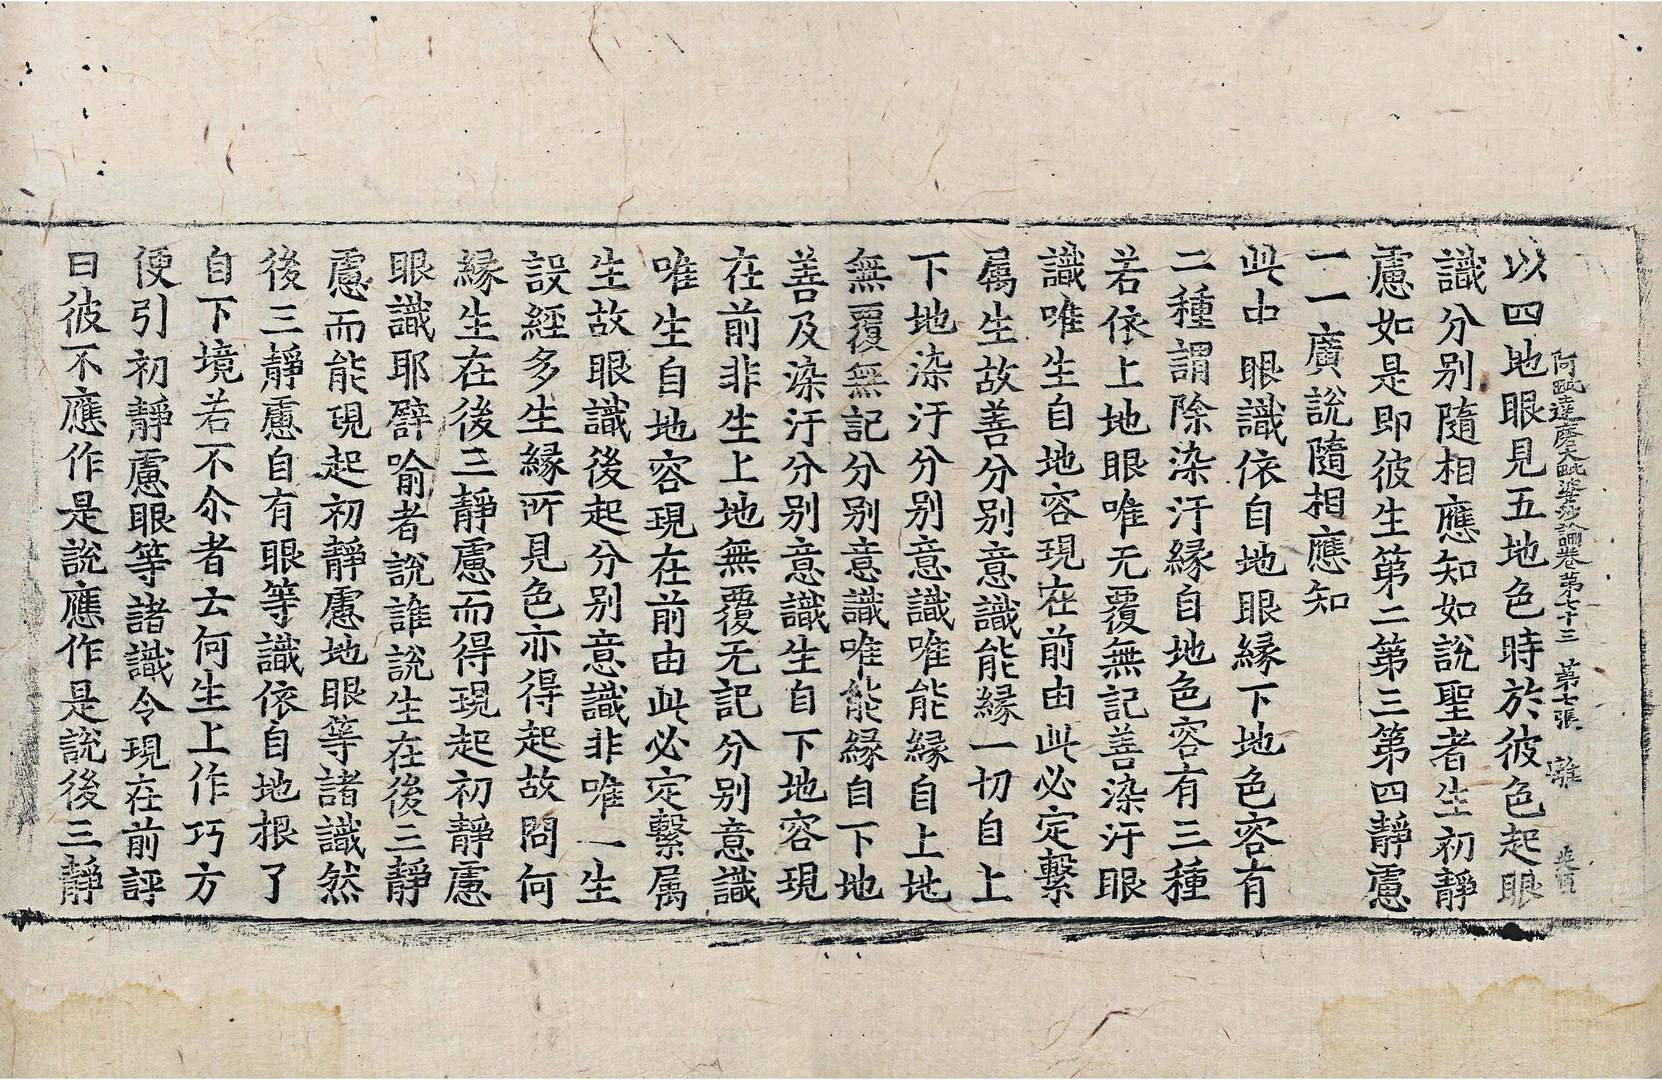 阿毗達磨大毗婆沙論卷第七十三　第七張　離
以四地眼見五地色時於彼色起眼
識分別隨相應知如說聖者生初靜
慮如是即彼生第二第三第四靜慮
一一廣說隨相應知
此中眼識依自地眼緣下地色容有
二種謂除染汙緣自地色容有三種
若依上地眼唯无覆無記善染汙眼
識唯生自地容現在前由此必定繫
屬生故善分別意識能緣一切自上
下地染汙分別意識唯能緣自上地
無覆無記分別意識唯能緣自下地
善及染汙分別意識生自下地容現
在前非生上地無覆无記分別意識
唯生自地容現在前由此必定繫屬
生故眼識後起分別意識非唯一生
設經多生緣所見色亦得起故問何
緣生在後三靜慮而得現起初靜慮
眼識耶譬喻者說誰說生在後三靜
慮而能現起初靜慮地眼等諸識然
後三靜慮自有眼等識依自地根了
自下境若不尒者云何生上作巧方
便引初靜慮眼等諸識令現在前評
曰彼不應作是說應作是說後三靜